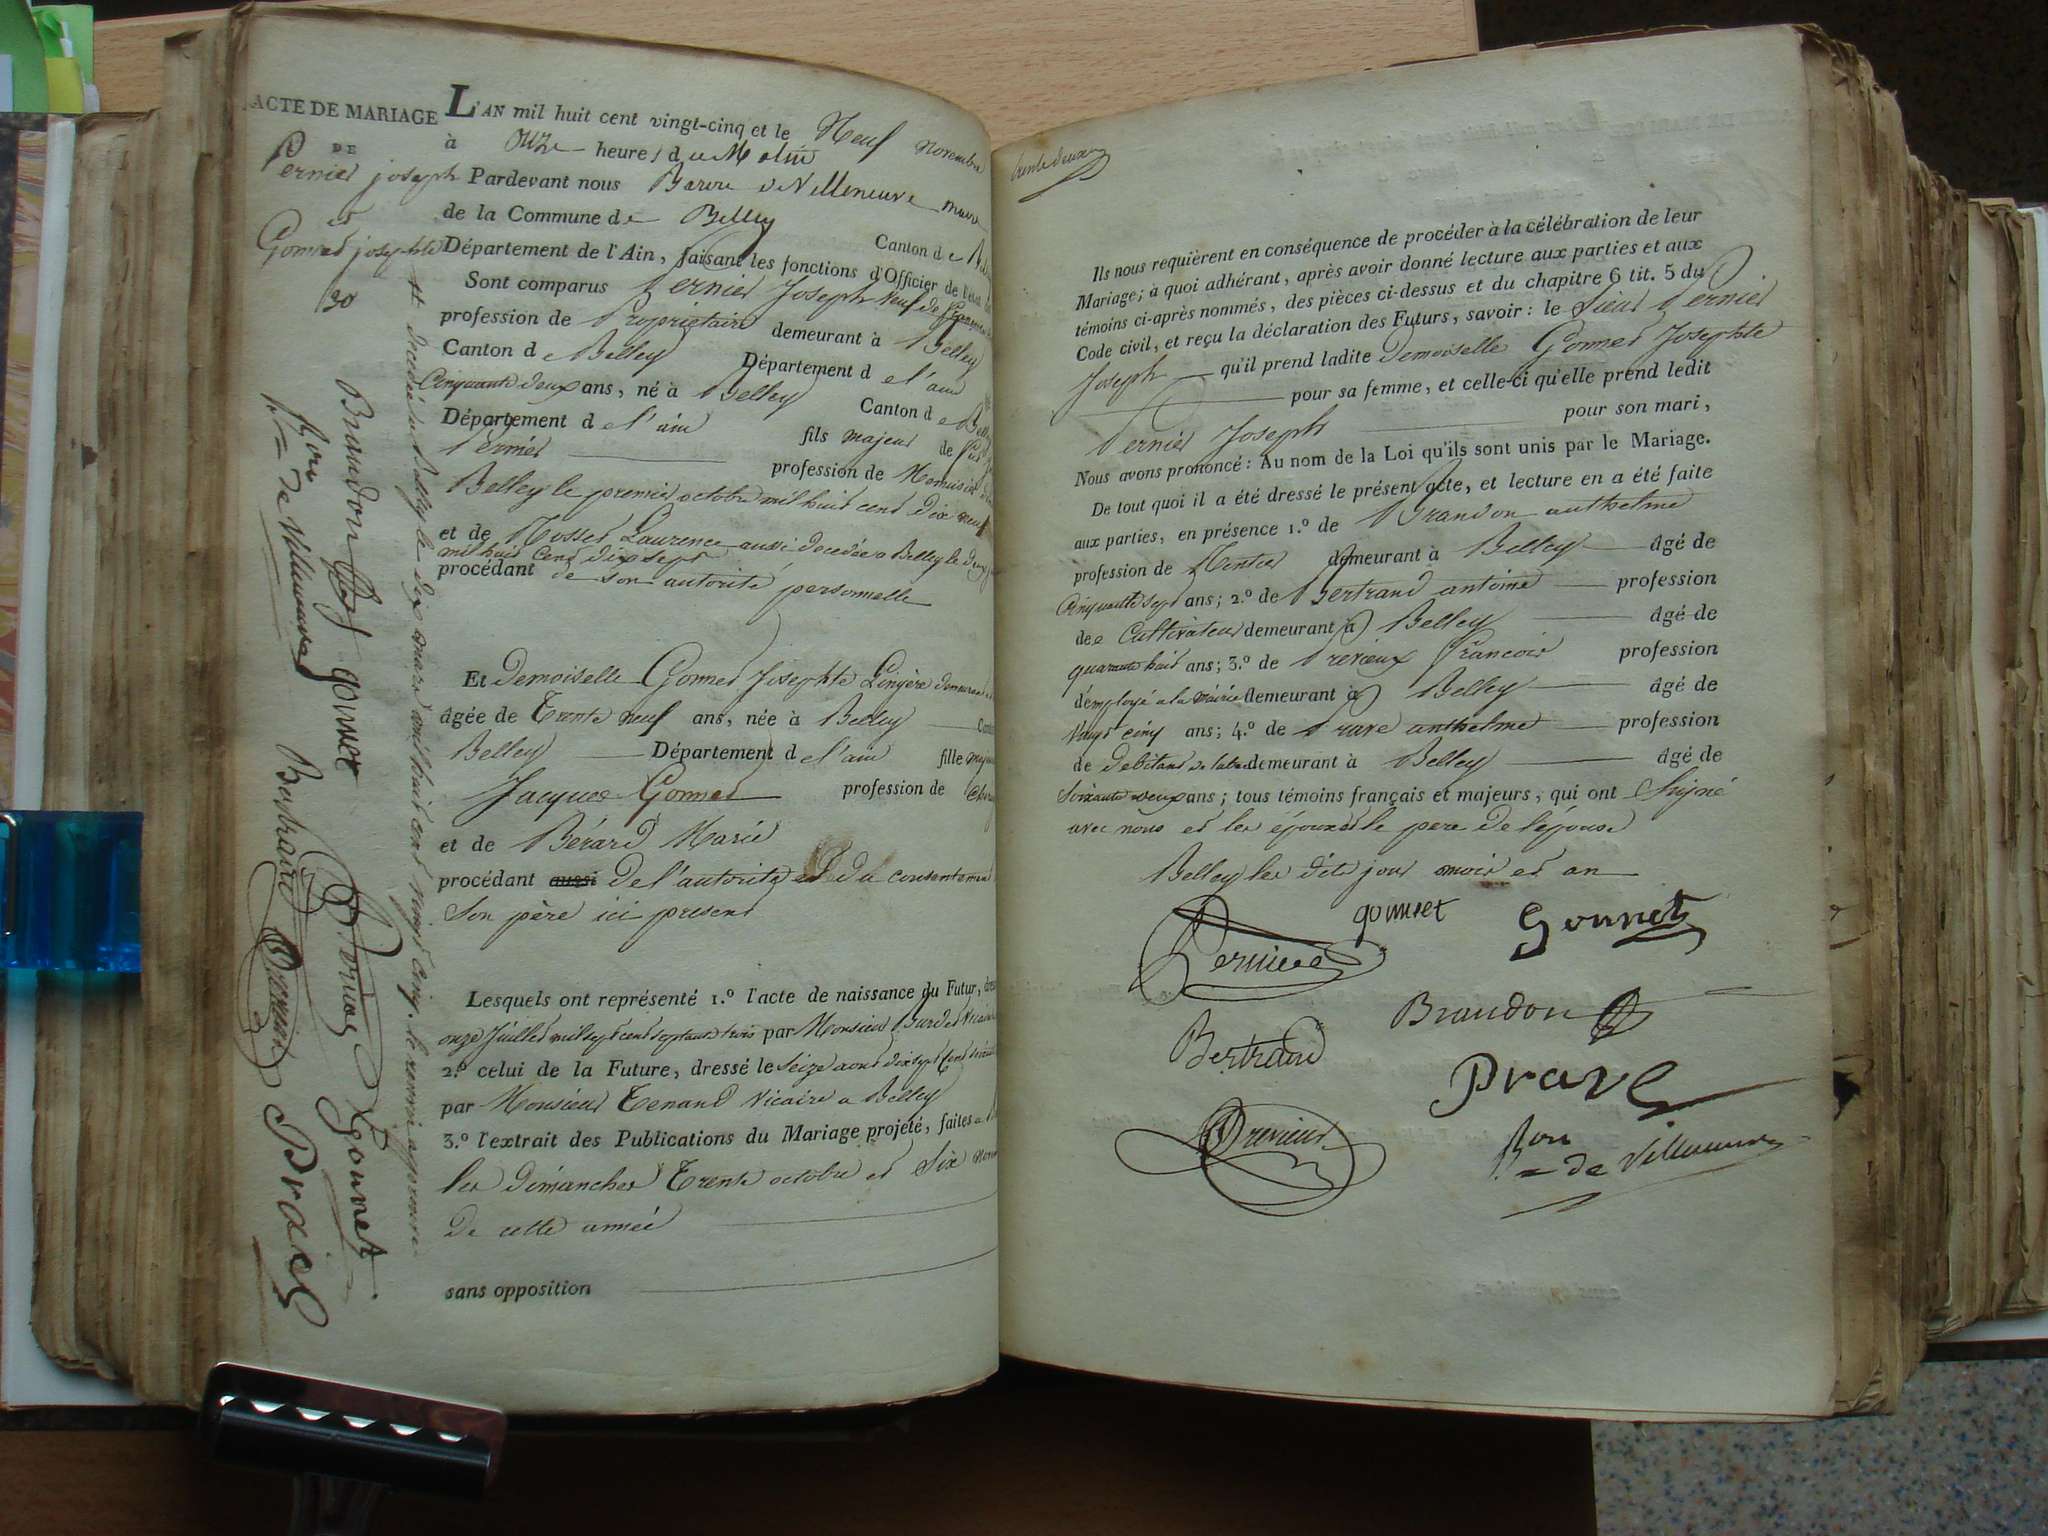 ACTE DE MARIAGE
DE
Pernier joseph
et
Gonnet josephte
30
L'AN mil huit cent vingt-cinq et le Neuf Novembre
à onze heures du Matin
Pardevant nous Baron de Villeneuve maire
de la Commune de Belley Canton de
Département de l'Ain, faisant les fonctions d'Officier de l'état
Sont comparus Pernier Joseph Veuf de
profession de Propriétaire demeurant à Belley
Canton de Belley Département de l'ain
Cinquante deux ans, né à Belley Canton de Belley
Département de l'ain fils majeur de
Pernier profession de
Belley le premier octobre mil huit cent dix neuf
et de Rosset Laurence aussi decedée a Belley le
mil huit cent dix sept
procédant de son autorité personnelle
Et Demoiselle Gonnet Josephte Lingère demeurant
âgée de Trente neuf ans, née à Belley
Belley Département de l'ain fille
Jacques Gonnet profession de
et de Bérard Marie
procédant aussi De l'autorité et du consentement
Son père ici present
Lesquels ont représenté 1.º l'acte de naissance du Futur,
onze Juillet mil sept cent septante trois par Monsieur Vicaire
2.º celui de la Future, dressé le Seize aout dix sept cent
par Monsieur Tenand Vicaire a Belley
3.º l'extrait des Publications du Mariage projeté, faites
les dimanches Trente octobre et Six
De cette année
sans opposition
et decédée a Belley le dix mars mil huit cent vingt cinq, le renvoi approuvé
Brandon gonnet Pernier Gonnet
Bon de Villeneuve Bertrand Previeux Prave
trente deux
Ils nous requièrent en conséquence de procéder à la célébration de leur
Mariage; à quoi adhérant, après avoir donné lecture aux parties et aux
témoins ci-après nommés, des pièces ci-dessus et du chapitre 6 tit. 5 du
Code civil, et reçu la déclaration des Futurs, savoir: le Sieur Pernier
Joseph qu'il prend ladite Demoiselle Gonnet Josephte
pour sa femme, et celle-ci qu'elle prend ledit
Pernier Joseph pour son mari,
Nous avons prononcé: Au nom de la Loi qu'ils sont unis par le Mariage.
De tout quoi il a été dressé le présent acte, et lecture en a été faite
aux parties, en présence 1.º de Brandon anthelme
profession de Rentier demeurant à Belley âgé de
Cinquante sept ans; 2.º de Bertrand antoine profession
de Cultivateur demeurant à Belley âgé de
quarante huit ans; 3.º de Previeux François profession
d'employé a la Mairie demeurant à Belley âgé de
Vingt cinq ans; 4.º de Prave anthelme profession
de debitant de tabac demeurant à Belley âgé de
Soixante deux ans; tous témoins français et majeurs, qui ont Signé
avec nous et les époux et le pere de l'épouse
Belley les dits jour mois et an
Pernier gonnet Gonnet
Brandon
Bertrand
Prave
Previeux
Bon de Villeneuve